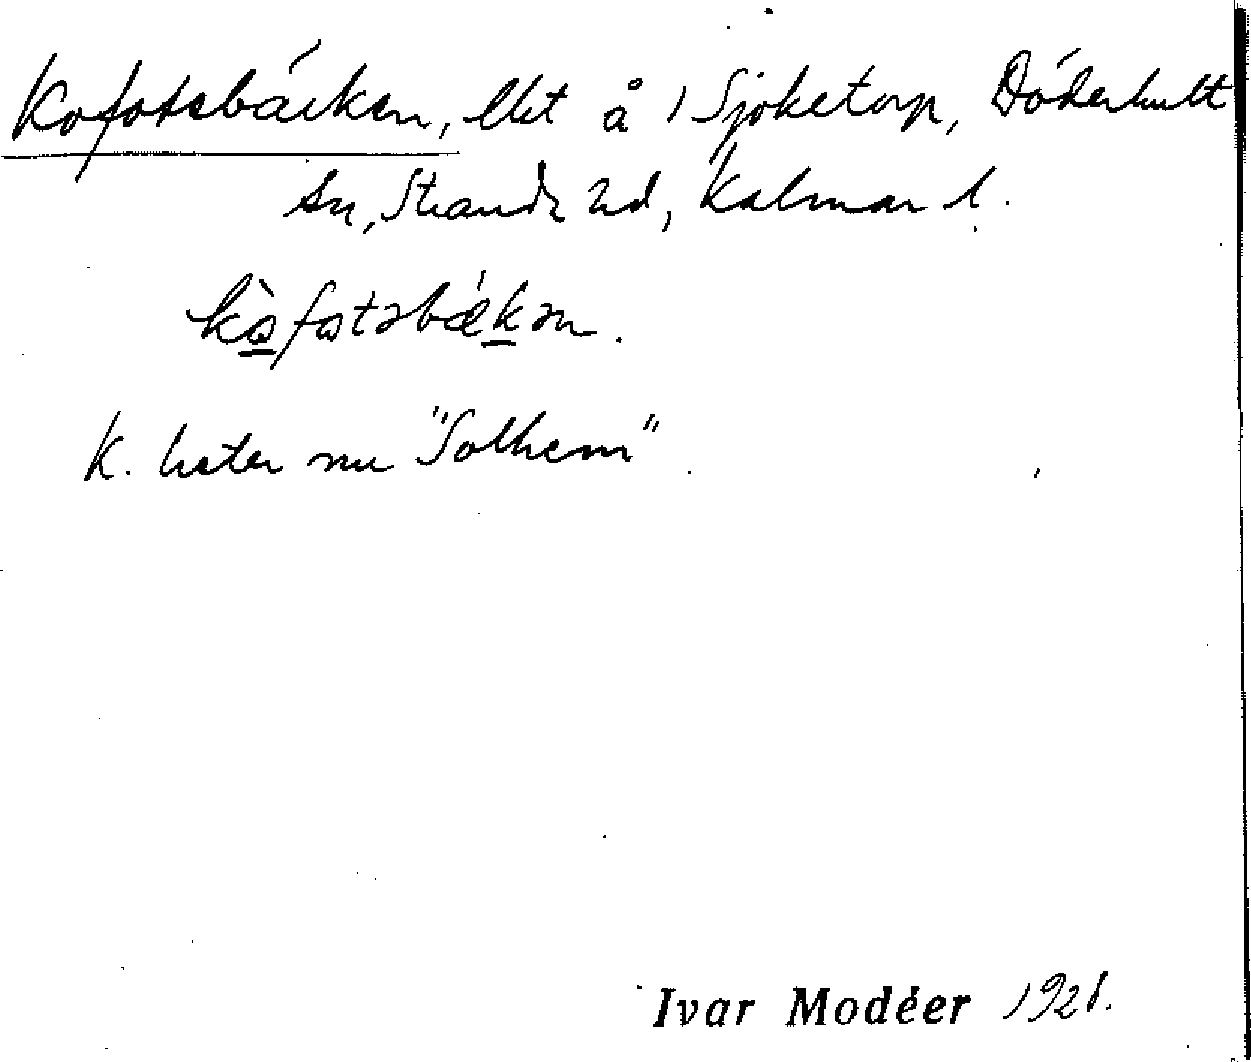 Kofotsbäcken, lht å 1 Sjöketorp, Döderhult
sn, Strands hd, Kalmar l.
kòfotsbækən.
K. heter nu "Solhem"
Ivar Modéer 1921.